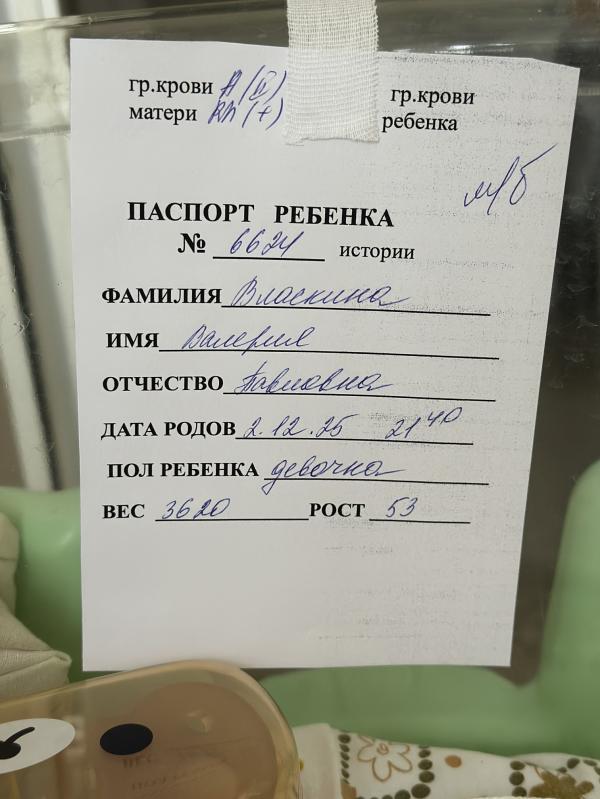 гр.крови A(II) гр.крови
матери Rh(+) ребенка
м/б
ПАСПОРТ РЕБЕНКА
№ 6624 истории
ФАМИЛИЯ Власкина
ИМЯ Валерия
ОТЧЕСТВО Павловна
ДАТА РОДОВ 2.12.25 21 40
ПОЛ РЕБЕНКА девочка
ВЕС 3620 РОСТ 53